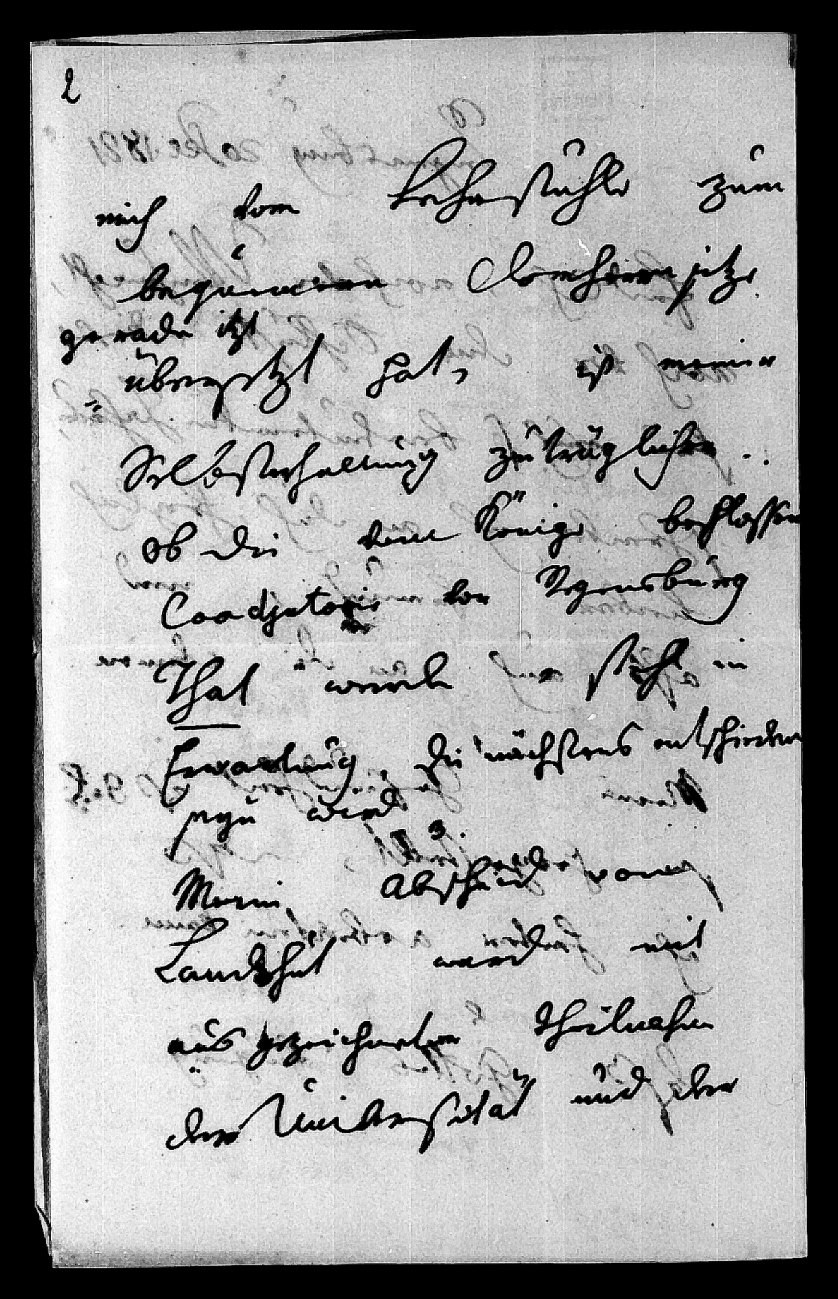 2
mich vom Lehrstuhle zum
bequemern Chorherrnsitze
gerade itzt
übersetzt hat, ist meiner
Selbsterhaltung zuträglicher.
Ob die vom Könige beschlossene
Coadjutorie von Regensburg
That werde, steht in
Erwartung, die nächstens entschieden
seyn wird
3.
Mein Abschied von
Landshut ward mit
ausgezeichneter Theilnahme
der Universität und der